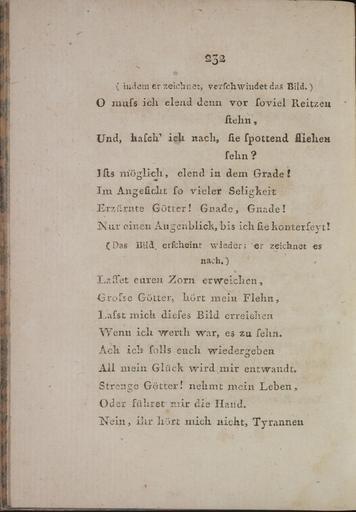 232
( indem er zeichnet, verſchwindet das Bild. )
O muſs ich elend denn vor ſoviel Reitzen
ſtehn,
Und, haſch' ich nach, ſie ſpottend fliehen
ſehn ?
Iſts möglich, elend in dem Grade !
Im Angeſicht ſo vieler Seligkeit
Erzürnte Götter! Gnade, Gnade!
Nur einen Augenblick, bis ich ſie konterfeyt!
( Das Bild erſcheint wieder; er zeichnet es
nach. )
Laſſet euren Zorn erweichen,
Groſse Götter, hört mein Flehn,
Laſst mich dieſes Bild erreichen
Wenn ich werth war, es zu ſehn.
Ach ich ſolls euch wiedergeben
All mein Glück wird mir entwandt.
Strenge Götter! nehmt mein Leben,
Oder führet mir die Hand.
Nein, ihr hört mich nicht, Tyrannen